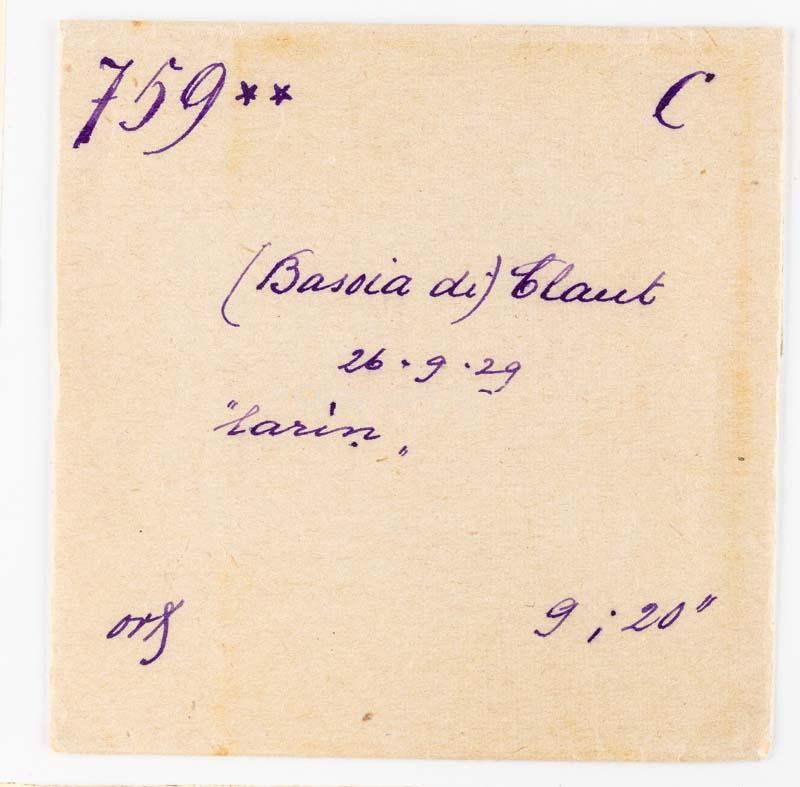 759** C
(Bassia di) Claut
26.9.29
"larin"
org
9; 20"